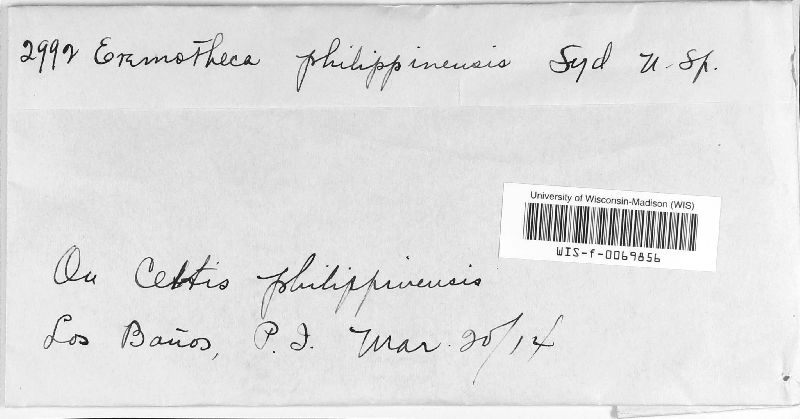 2992 Eremotheca philippinensis Syd n. sp.
University of Wisconsin-Madison (WIS)
WIS-f-0069856
On Celtis philippinensis
Los Baños, P. I. Mar. 20/14